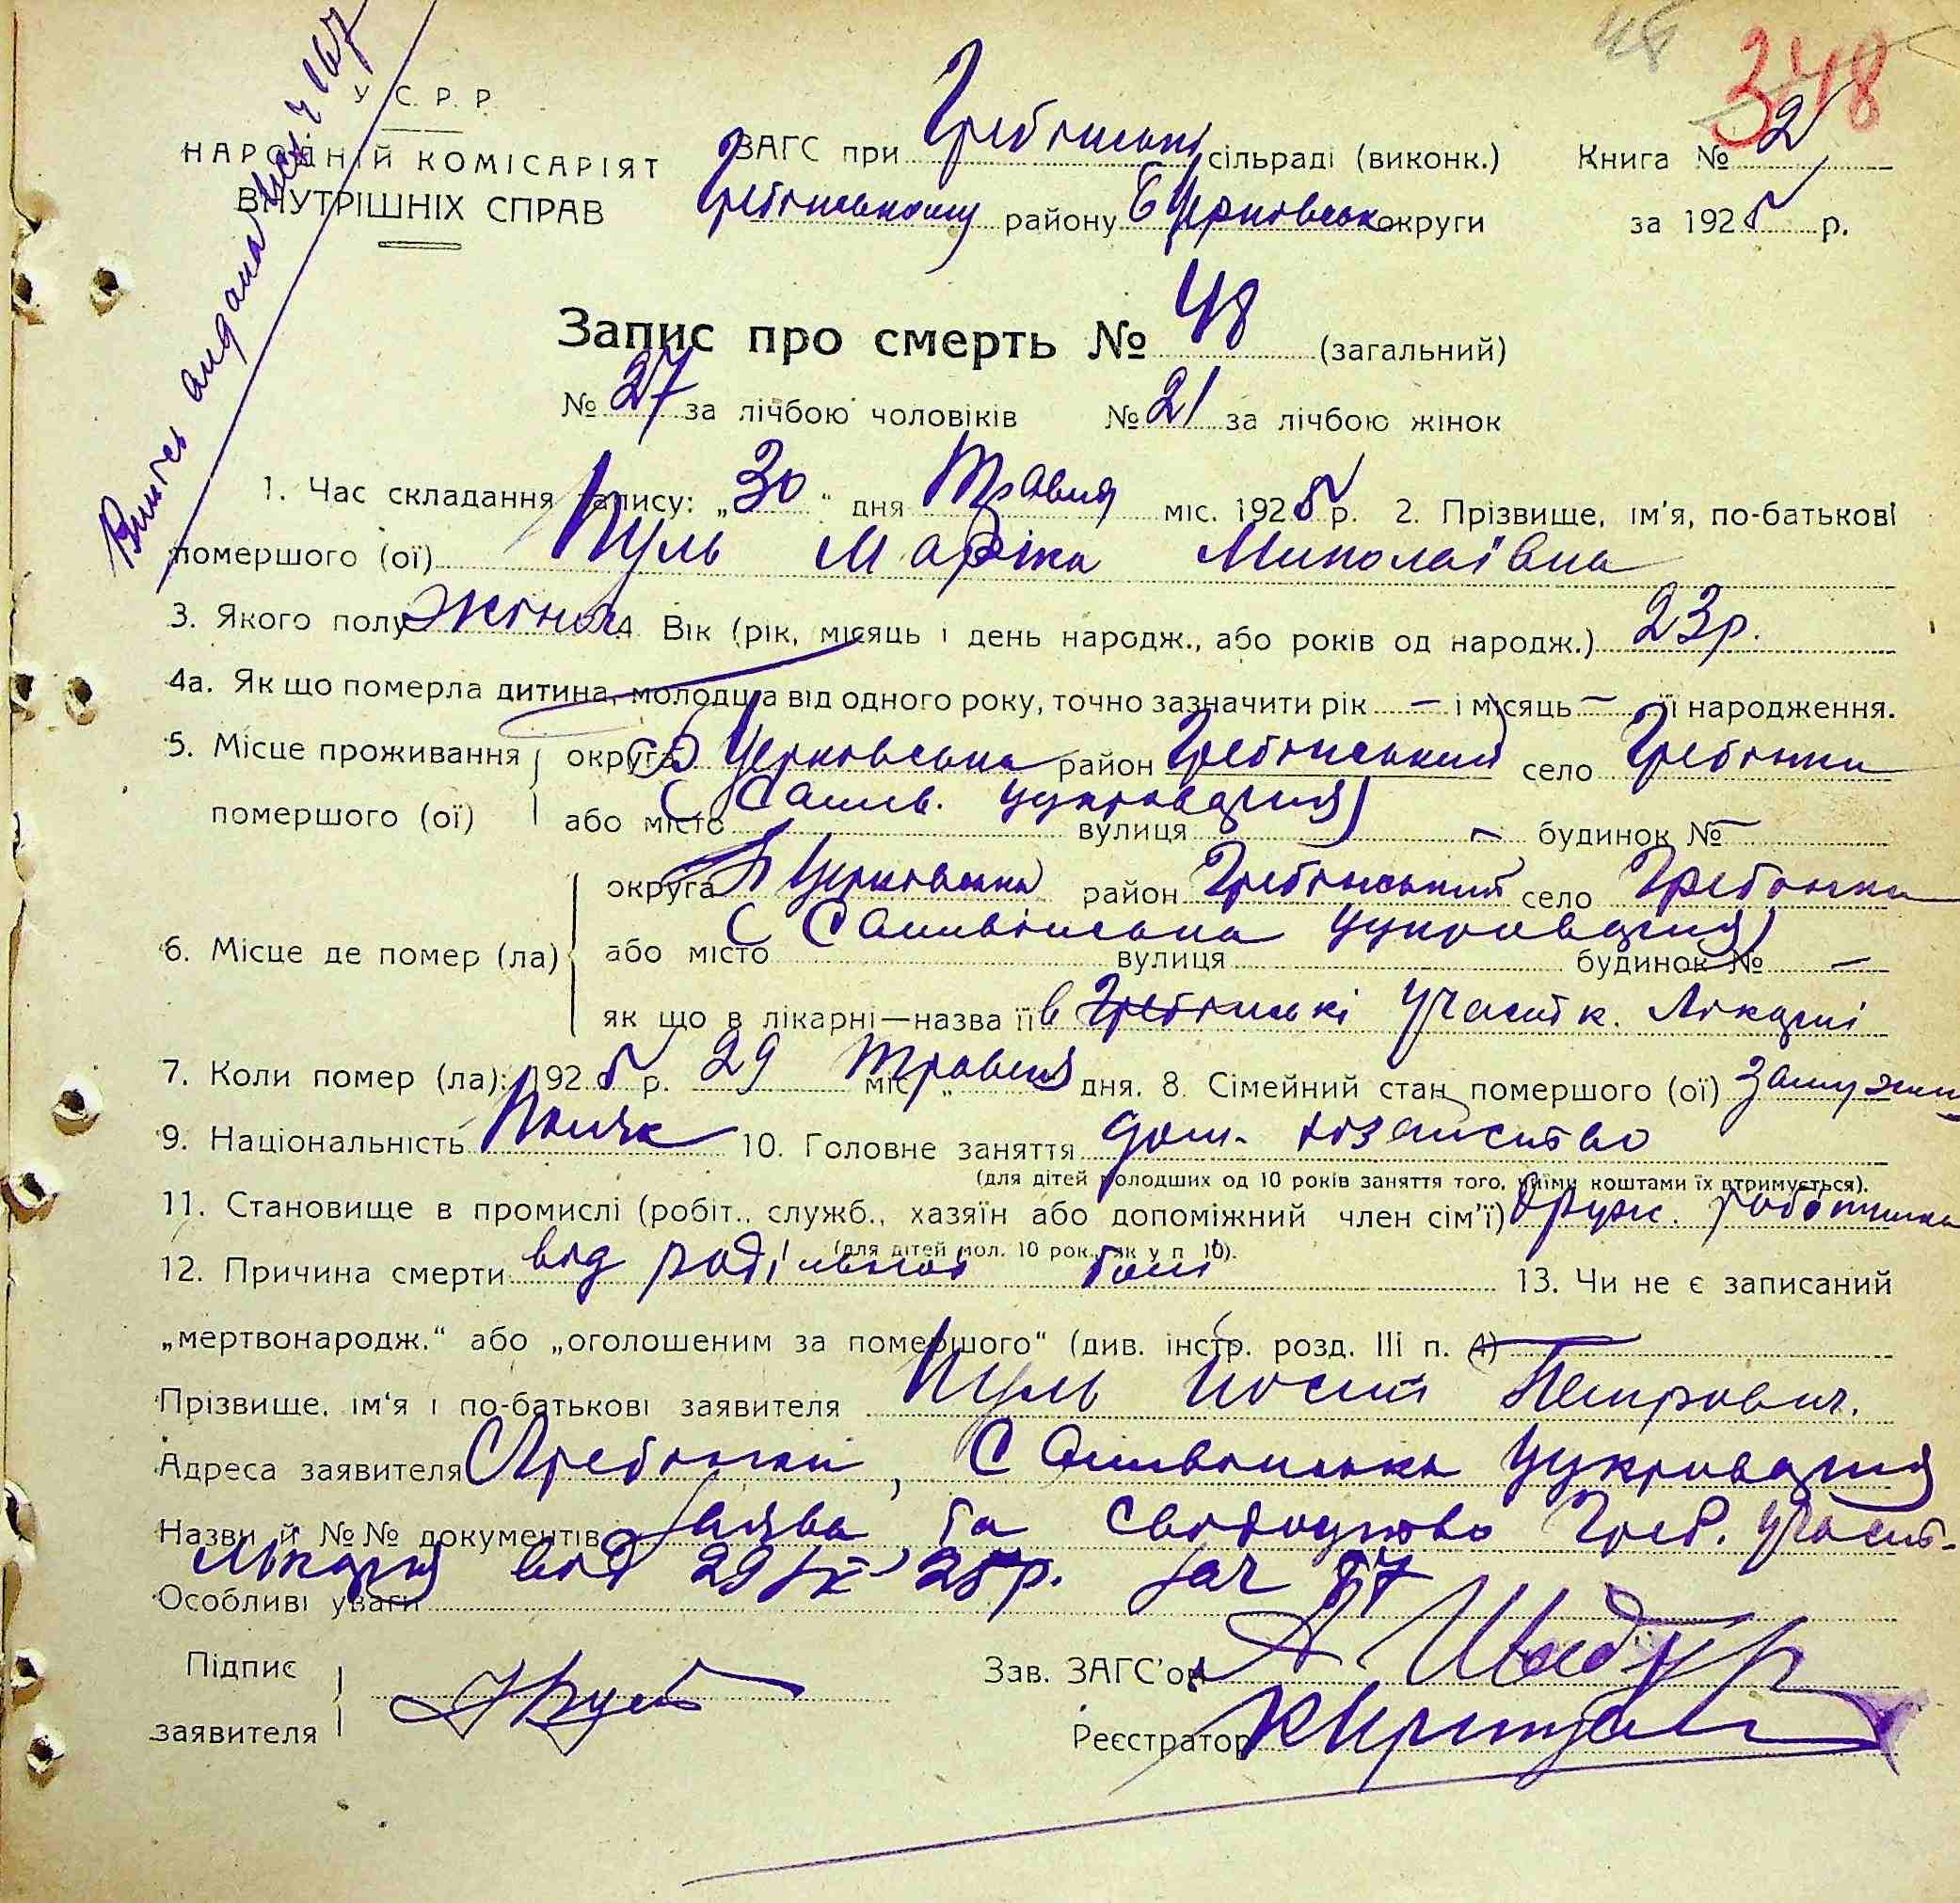 48
348
У. С. Р. Р.
НАРОДНІЙ КОМІСАРІЯТ
ВНУТРІШНІХ СПРАВ
ЗАГС при Гребінські сільраді (виконк.) Книга № 2
Гребінському району БЦерковськ округи за 1925 р.
Запис про смерть № 48 (загальний)
№ 27 за лічбою чоловіків № 21 за лічбою жінок
1. Час складання запису: „30“ дня Травня міс. 1925 р. 2. Прізвище, ім'я, по-батькові
помершого (ої) Куль Маріка Миколаївна
3. Якого полу жіноч. 4. Вік (рік, місяць і день народж., або років од народж.) 23р.
4а. Як що померла дитина, молодша від одного року, точно зазначити рік — і місяць — її народження.
5. Місце проживання помершого (ої) округа БЦерковська район Гребінський село Гребінки
(Саливінк. цукроварня)
або місто вулиця — будинок № —
6. Місце де помер (ла) округа БЦерковська район Гребінський село Гребінки
(Саливінська цукроварня)
або місто вулиця будинок № —
як що в лікарні—назва її в Гребінські участк. Лікарні
7. Коли помер (ла): 1925 р. 29 міс. „ Травня дня. 8. Сімейний стан помершого (ої) замужня
9. Національність Поляк 10. Головне заняття дом. хозяйство
(для дітей молодших од 10 років заняття того, чиїми коштами їх втримується).
11. Становище в промислі (робіт., служб., хазяїн або допоміжний член сім'ї) друж. робітника
(для дітей мол. 10 рок., як у п 10).
12. Причина смерти від родільної 13. Чи не є записаний
„мертвонародж.“ або „оголошеним за помершого“ (див. інстр. розд. III п. 4) —
Прізвище, ім'я і по-батькові заявителя Куль Йосип Петрович.
Адреса заявителя Гребінки, Саливінська цукроварня
Назви й №№ документів Заява та свідоцтво Греб. участ.
лікарні від 29/V-25р. за ч 87
Особливі уваги
Підпис заявителя
Зав. ЗАГС'ом
Реєстратор